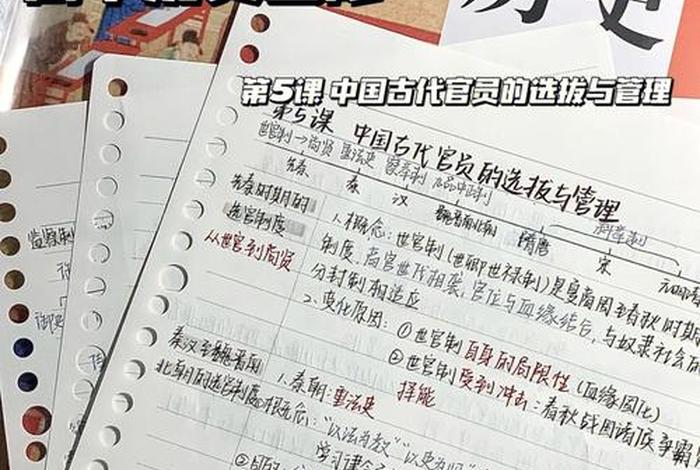 历史
第5课 中国古代官员的选拔与管理
第5课 中国古代官员的选拔与管理
世官制→尚贤 重法吏 察举制 九品中正制
科举制
秦 汉 魏晋南北朝 隋唐 宋 元明清
先秦时期的
选官制度
从世官到尚贤
1.概念:世官制(世卿世禄制)是夏商周至春秋时期
制度,高官世代相袭,官位与血缘结合,与奴隶社会的
分封制相适应
2.变化原因:①世官制自身的局限性(血缘固化)
②世官制受到冲击:春秋战国诸侯争霸
择能
秦汉至魏晋南
北朝的选官制度
1.秦朝:重法吏
"以法为教""以吏为师"
学习课
②目的:
监察制
御史